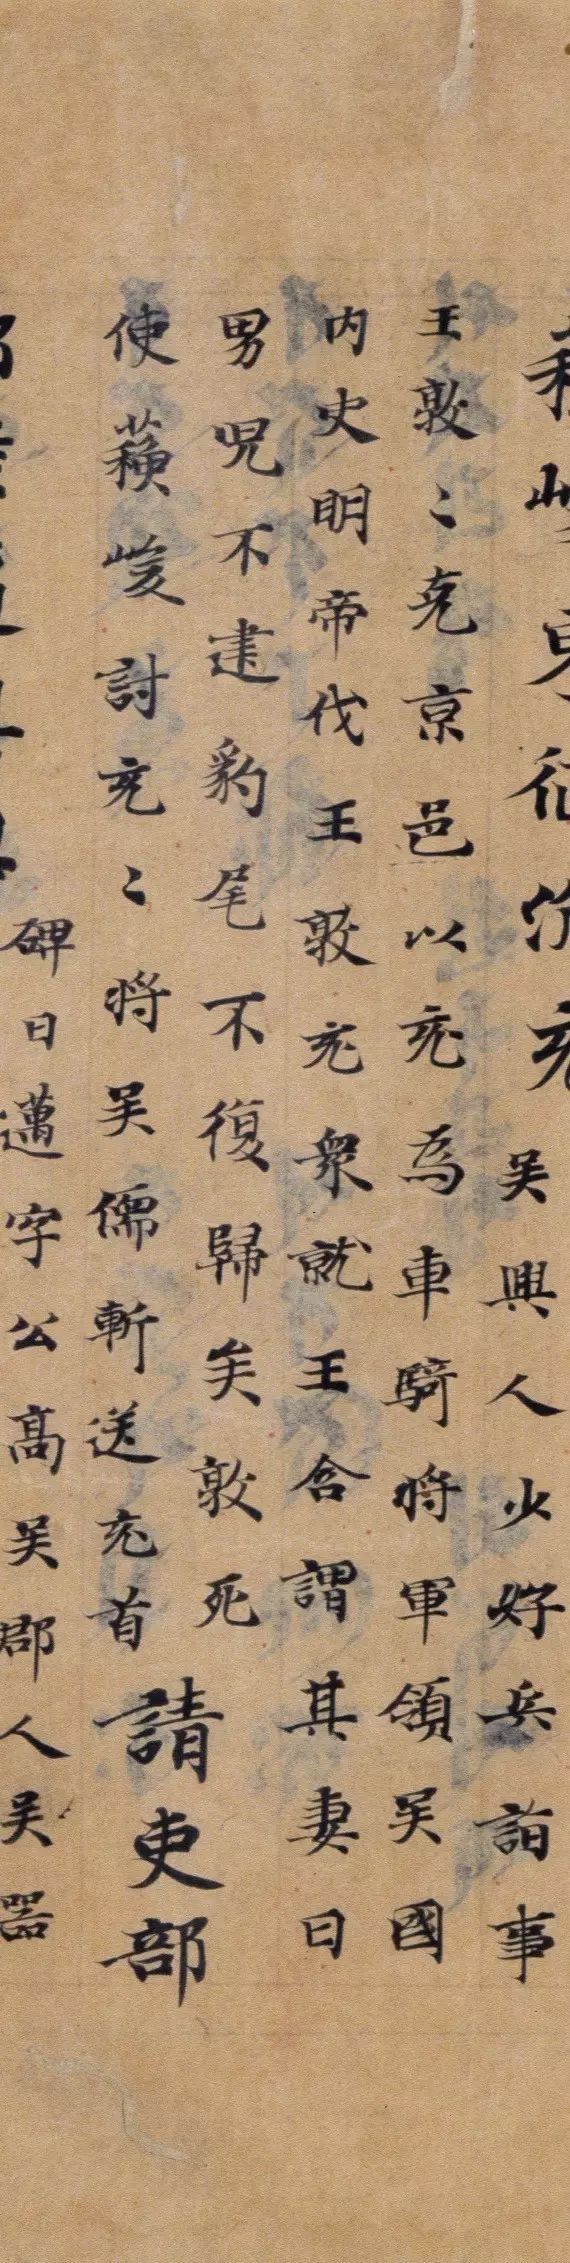 蘇峻東征沈充吳興人少好兵諂事
王敦〻克京邑以充為車騎將軍領吳國
内史明帝伐王敦充衆就王含謂其妻曰
男兒不建豹尾不復歸矣敦死
使蘇峻討充〻將吳儒斬送充首請吏部
碑曰邁字公高吳郡人吳器